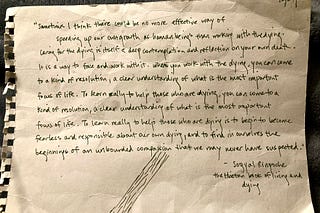 "Sometimes I think there could be no more effective way of
speeding up our outgrowth as human beings than working with the dying.
Caring for the dying is itself a deep contemplation and reflection on your own death.
It is a way to face and work with it. When you work with the dying, you can come
to a kind of resolution, a clear understanding of what is the most important
focus of life. To learn really to help those who are dying, you can come to a
kind of resolution, a clear understanding of what is the most important
focus of life. To learn really to help those who are dying is to begin to become
fearless and responsible about our own dying, and to find in ourselves the
beginnings of an unbounded compassion that we may never have suspected."
- Sogyal Rinpoche
the tibetan book of living and
dying